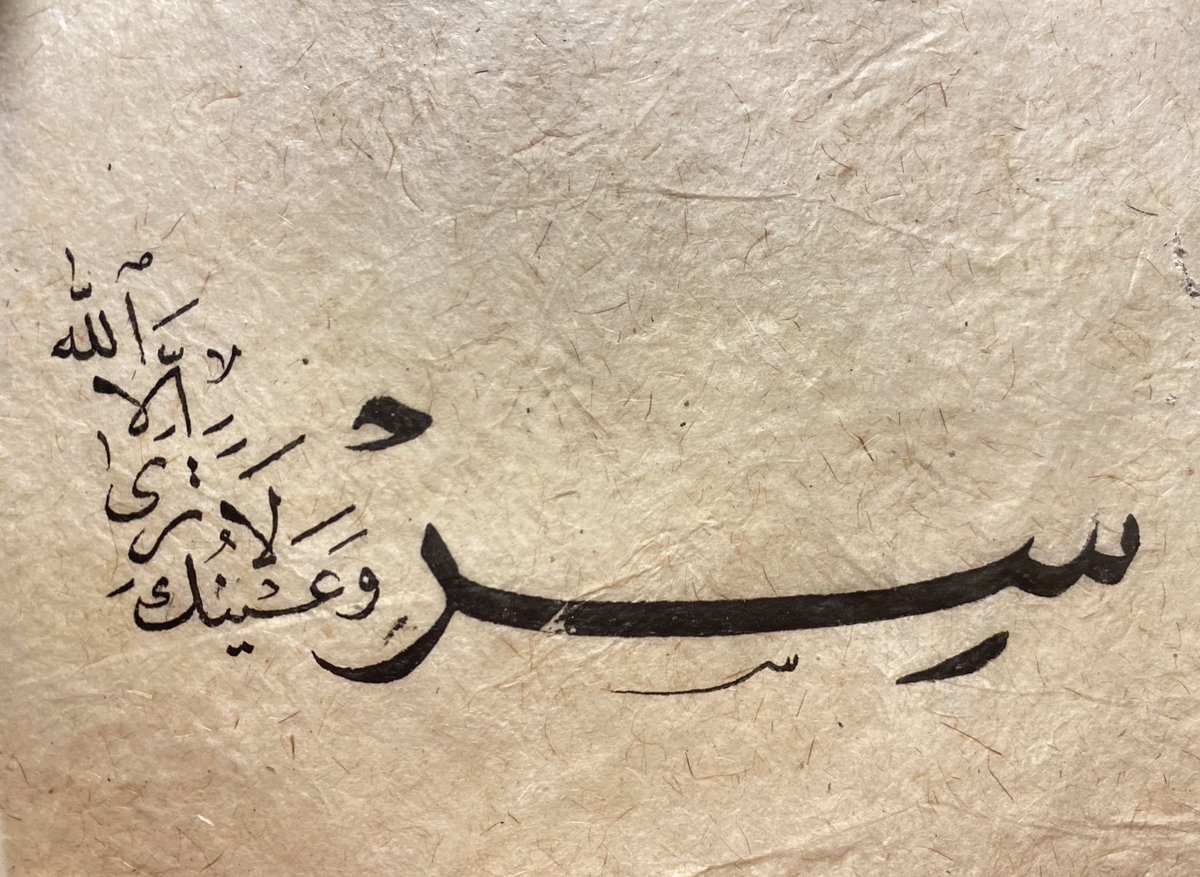 سِرْ وَعَيْنُكَ لَا تَرَى إِلَّا اللَّهَ